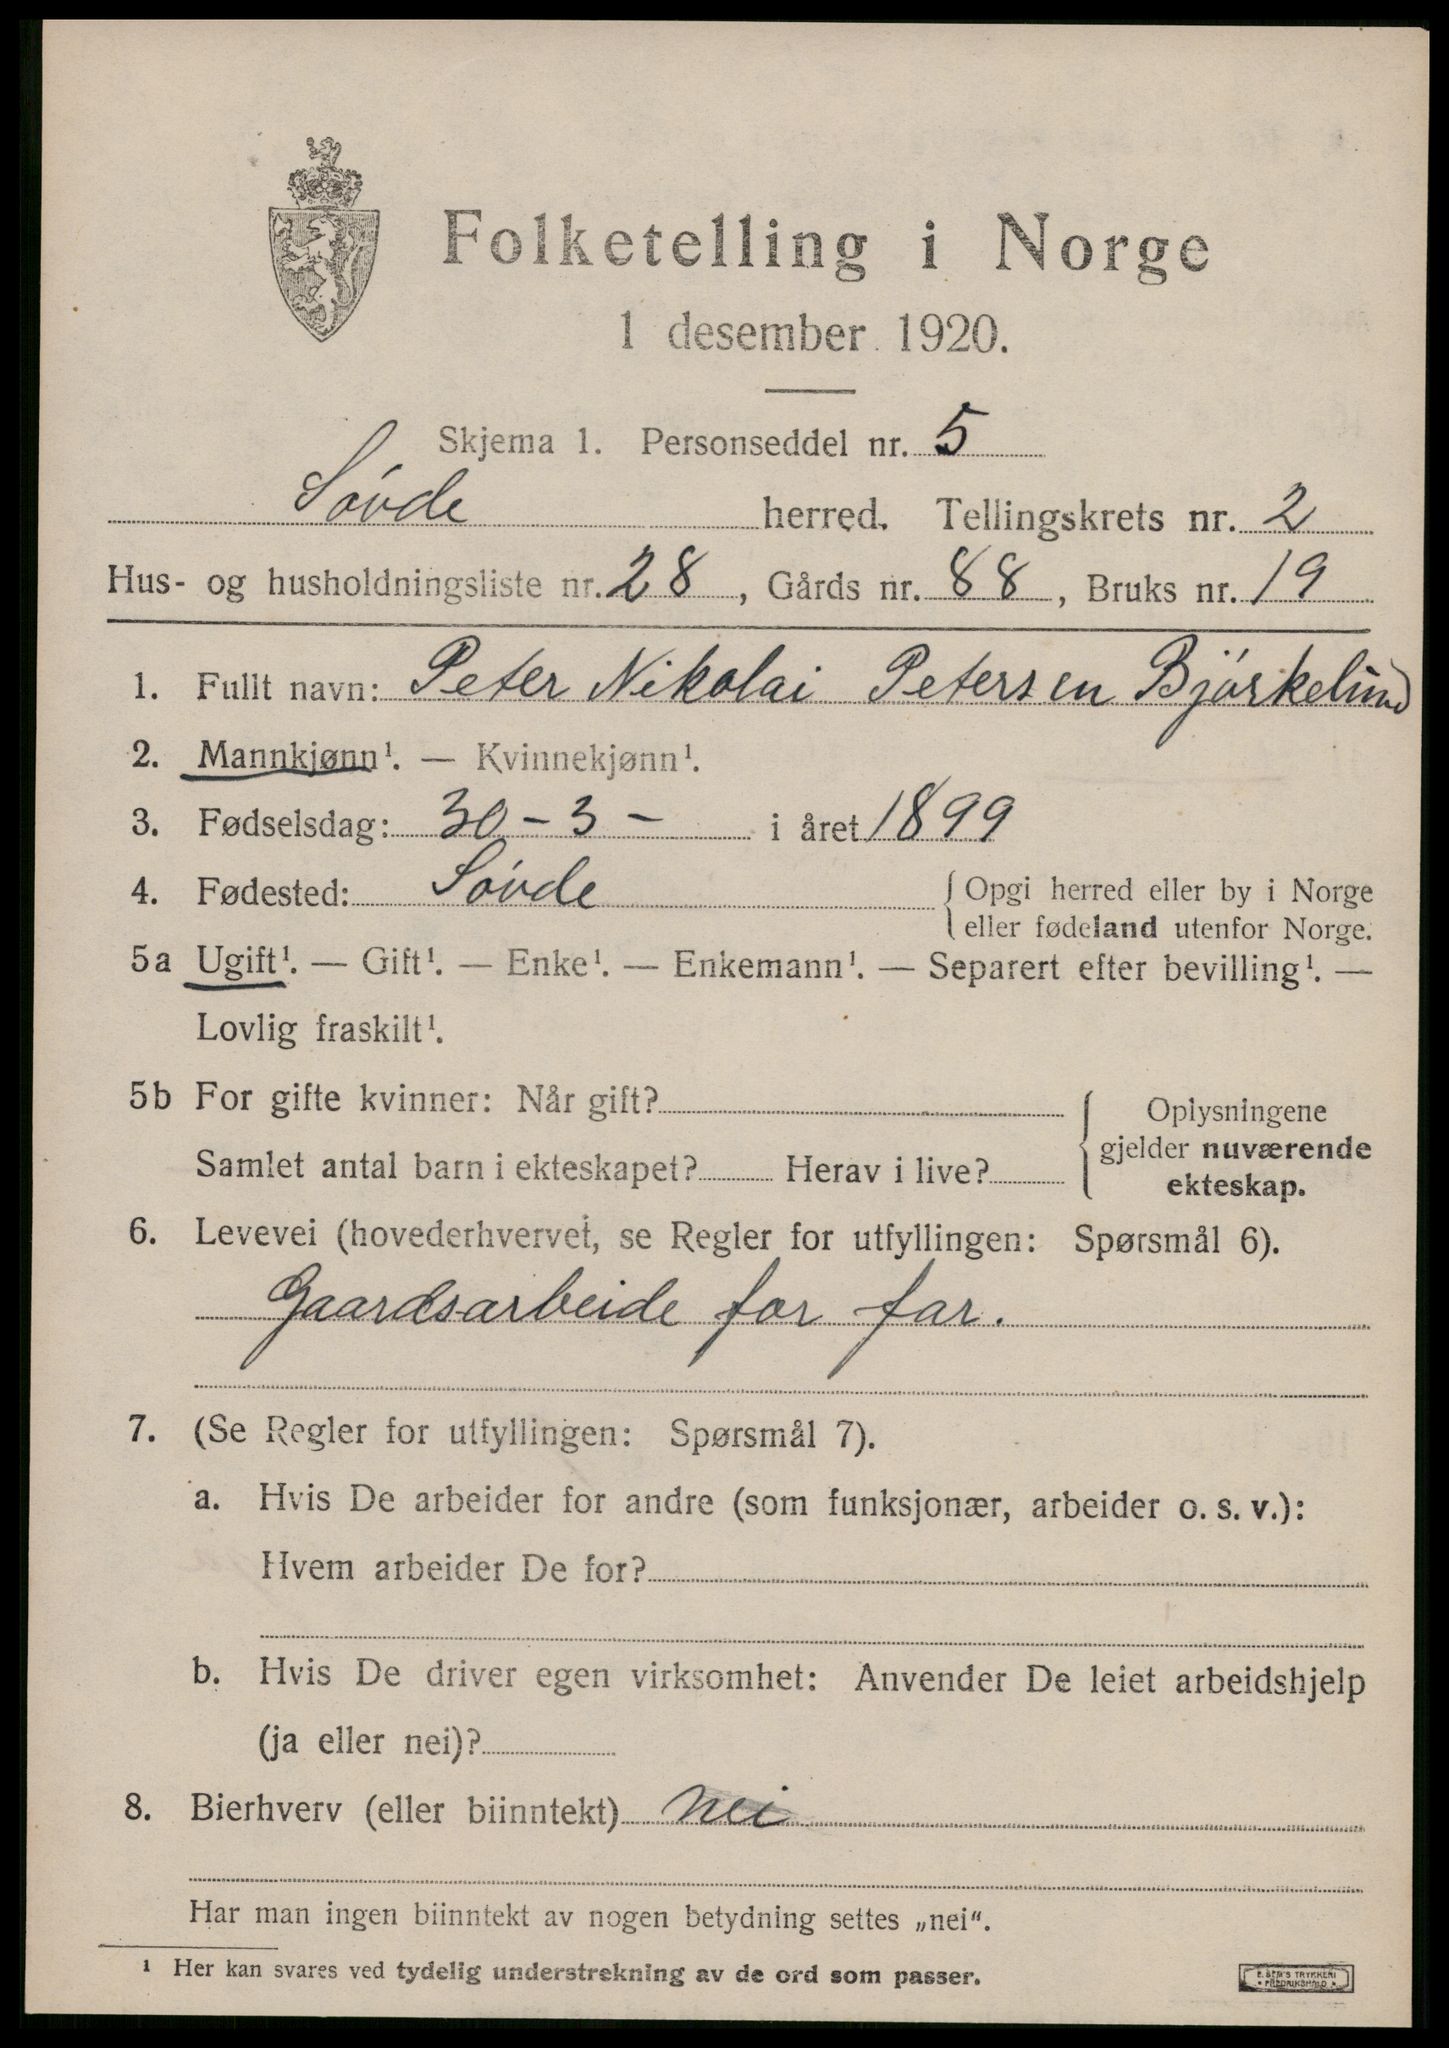 Folketelling i Norge
1 desember 1920.
Skjema 1. Personseddel nr. 5
Søvde herred. Tellingskrets nr. 2
Hus- og husholdningsliste nr. 28, Gårds nr. 88, Bruks nr. 19
1. Fullt navn: Peter Nikolai Petersen Bjórkelund
2. Mannkjønn¹. — Kvinnekjønn¹.
3. Fødselsdag: 30-3- i året 1899
4. Fødested: Søvde { Opgi herred eller by i Norge
eller fødeland utenfor Norge.
5a Ugift¹. — Gift¹. — Enke¹. — Enkemann¹. — Separert efter bevilling¹. —
Lovlig fraskilt¹.
5b For gifte kvinner: Når gift? { Oplysningene
gjelder nuværende
Samlet antal barn i ekteskapet? Herav i live? ekteskap.
6. Levevei (hovederhvervet, se Regler for utfyllingen: Spørsmål 6).
Gaardsarbeide for far.
7. (Se Regler for utfyllingen: Spørsmål 7).
a. Hvis De arbeider for andre (som funksjonær, arbeider o. s. v.):
Hvem arbeider De for?
b. Hvis De driver egen virksomhet: Anvender De leiet arbeidshjelp
(ja eller nei)?
8. Bierhverv (eller biinntekt) nei
Har man ingen biinntekt av nogen betydning settes „nei“.
¹ Her kan svares ved tydelig understrekning av de ord som passer.
E. SEM'S TRYKKERI
• FREDRIKSHALD •